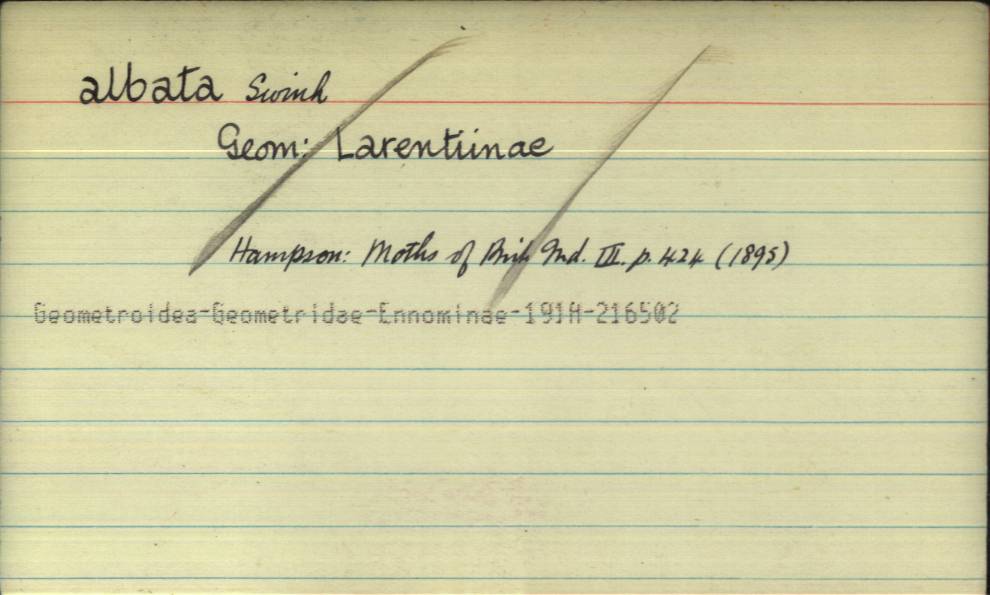 albata Swinh
Geom: Larentiinae
Hampson: Moths of Brit Ind. III. p. 424 (1895)
Geometroidea-Geometridae-Ennominae-191A-216502